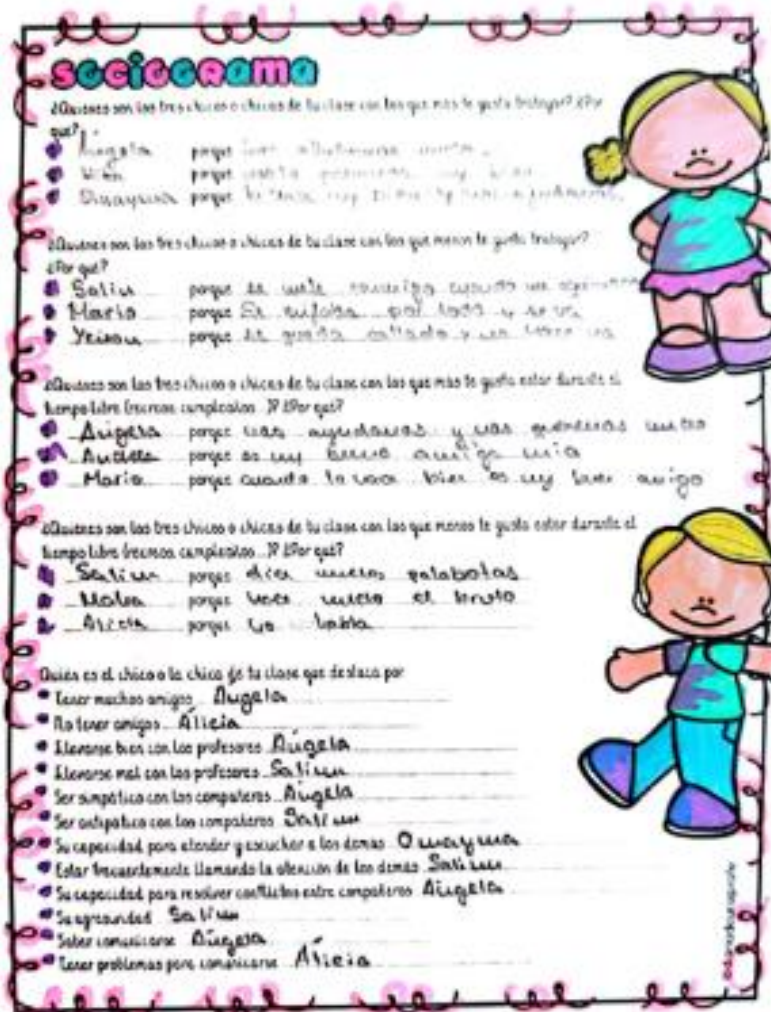 SOCIOGRAMA
¿Quiénes son los tres chicos o chicas de tu clase con los que más te gusta trabajar? ¿Por
qué?
Ángela porque
porque
porque
¿Quiénes son los tres chicos o chicas de tu clase con los que menos te gusta trabajar?
¿Por qué?
Salim porque se mete conmigo cuando
Mario porque Se enfada por todo y se va
Yeison porque se queda callado y no
¿Quiénes son los tres chicos o chicas de tu clase con los que más te gusta estar durante el
tiempo libre (recreos cumpleaños...)? ¿Por qué?
Ángela porque nos ayudamos y nos queremos mucho
porque es muy buena amiga mía
Mario porque cuando lo veo bien es muy buen amigo
¿Quiénes son los tres chicos o chicas de tu clase con los que menos te gusta estar durante el
tiempo libre (recreos cumpleaños...)? ¿Por qué?
Salim porque dice muchas palabotas
porque hace mucho el bruto
Alicia porque no habla
Quién es el chico o la chica de tu clase que destaca por
Tener muchos amigos Ángela
No tener amigos Álicia
Llevarse bien con los profesores Ángela
Llevarse mal con los profesores Salim
Ser simpático con los compañeros Ángela
Ser antipático con los compañeros Salim
Su capacidad para atender y escuchar a los demás Omayma
Estar frecuentemente llamando la atención de los demás Salim
Su capacidad para resolver conflictos entre compañeros Ángela
Su agresividad Salim
Saber comunicarse Ángela
Tener problemas para comunicarse Álicia